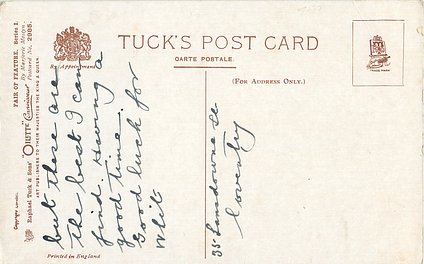 TUCK'S POST CARD
CARTE POSTALE.
By Appointment
(FOR ADDRESS ONLY.)
TRADE MARK
but these are
the best I can
find. Having a
good time.
Good luck for
Whit-
35 Lansdowne St
Coventry
FAIR OF FEATURE. Series I.
By Marjorie Mostyn.
Postcard No. 2985.
"OILETTE" Connoisseur
Raphael Tuck & Sons'
ART PUBLISHERS TO THEIR MAJESTIES THE KING & QUEEN.
Copyright London.
Printed in England